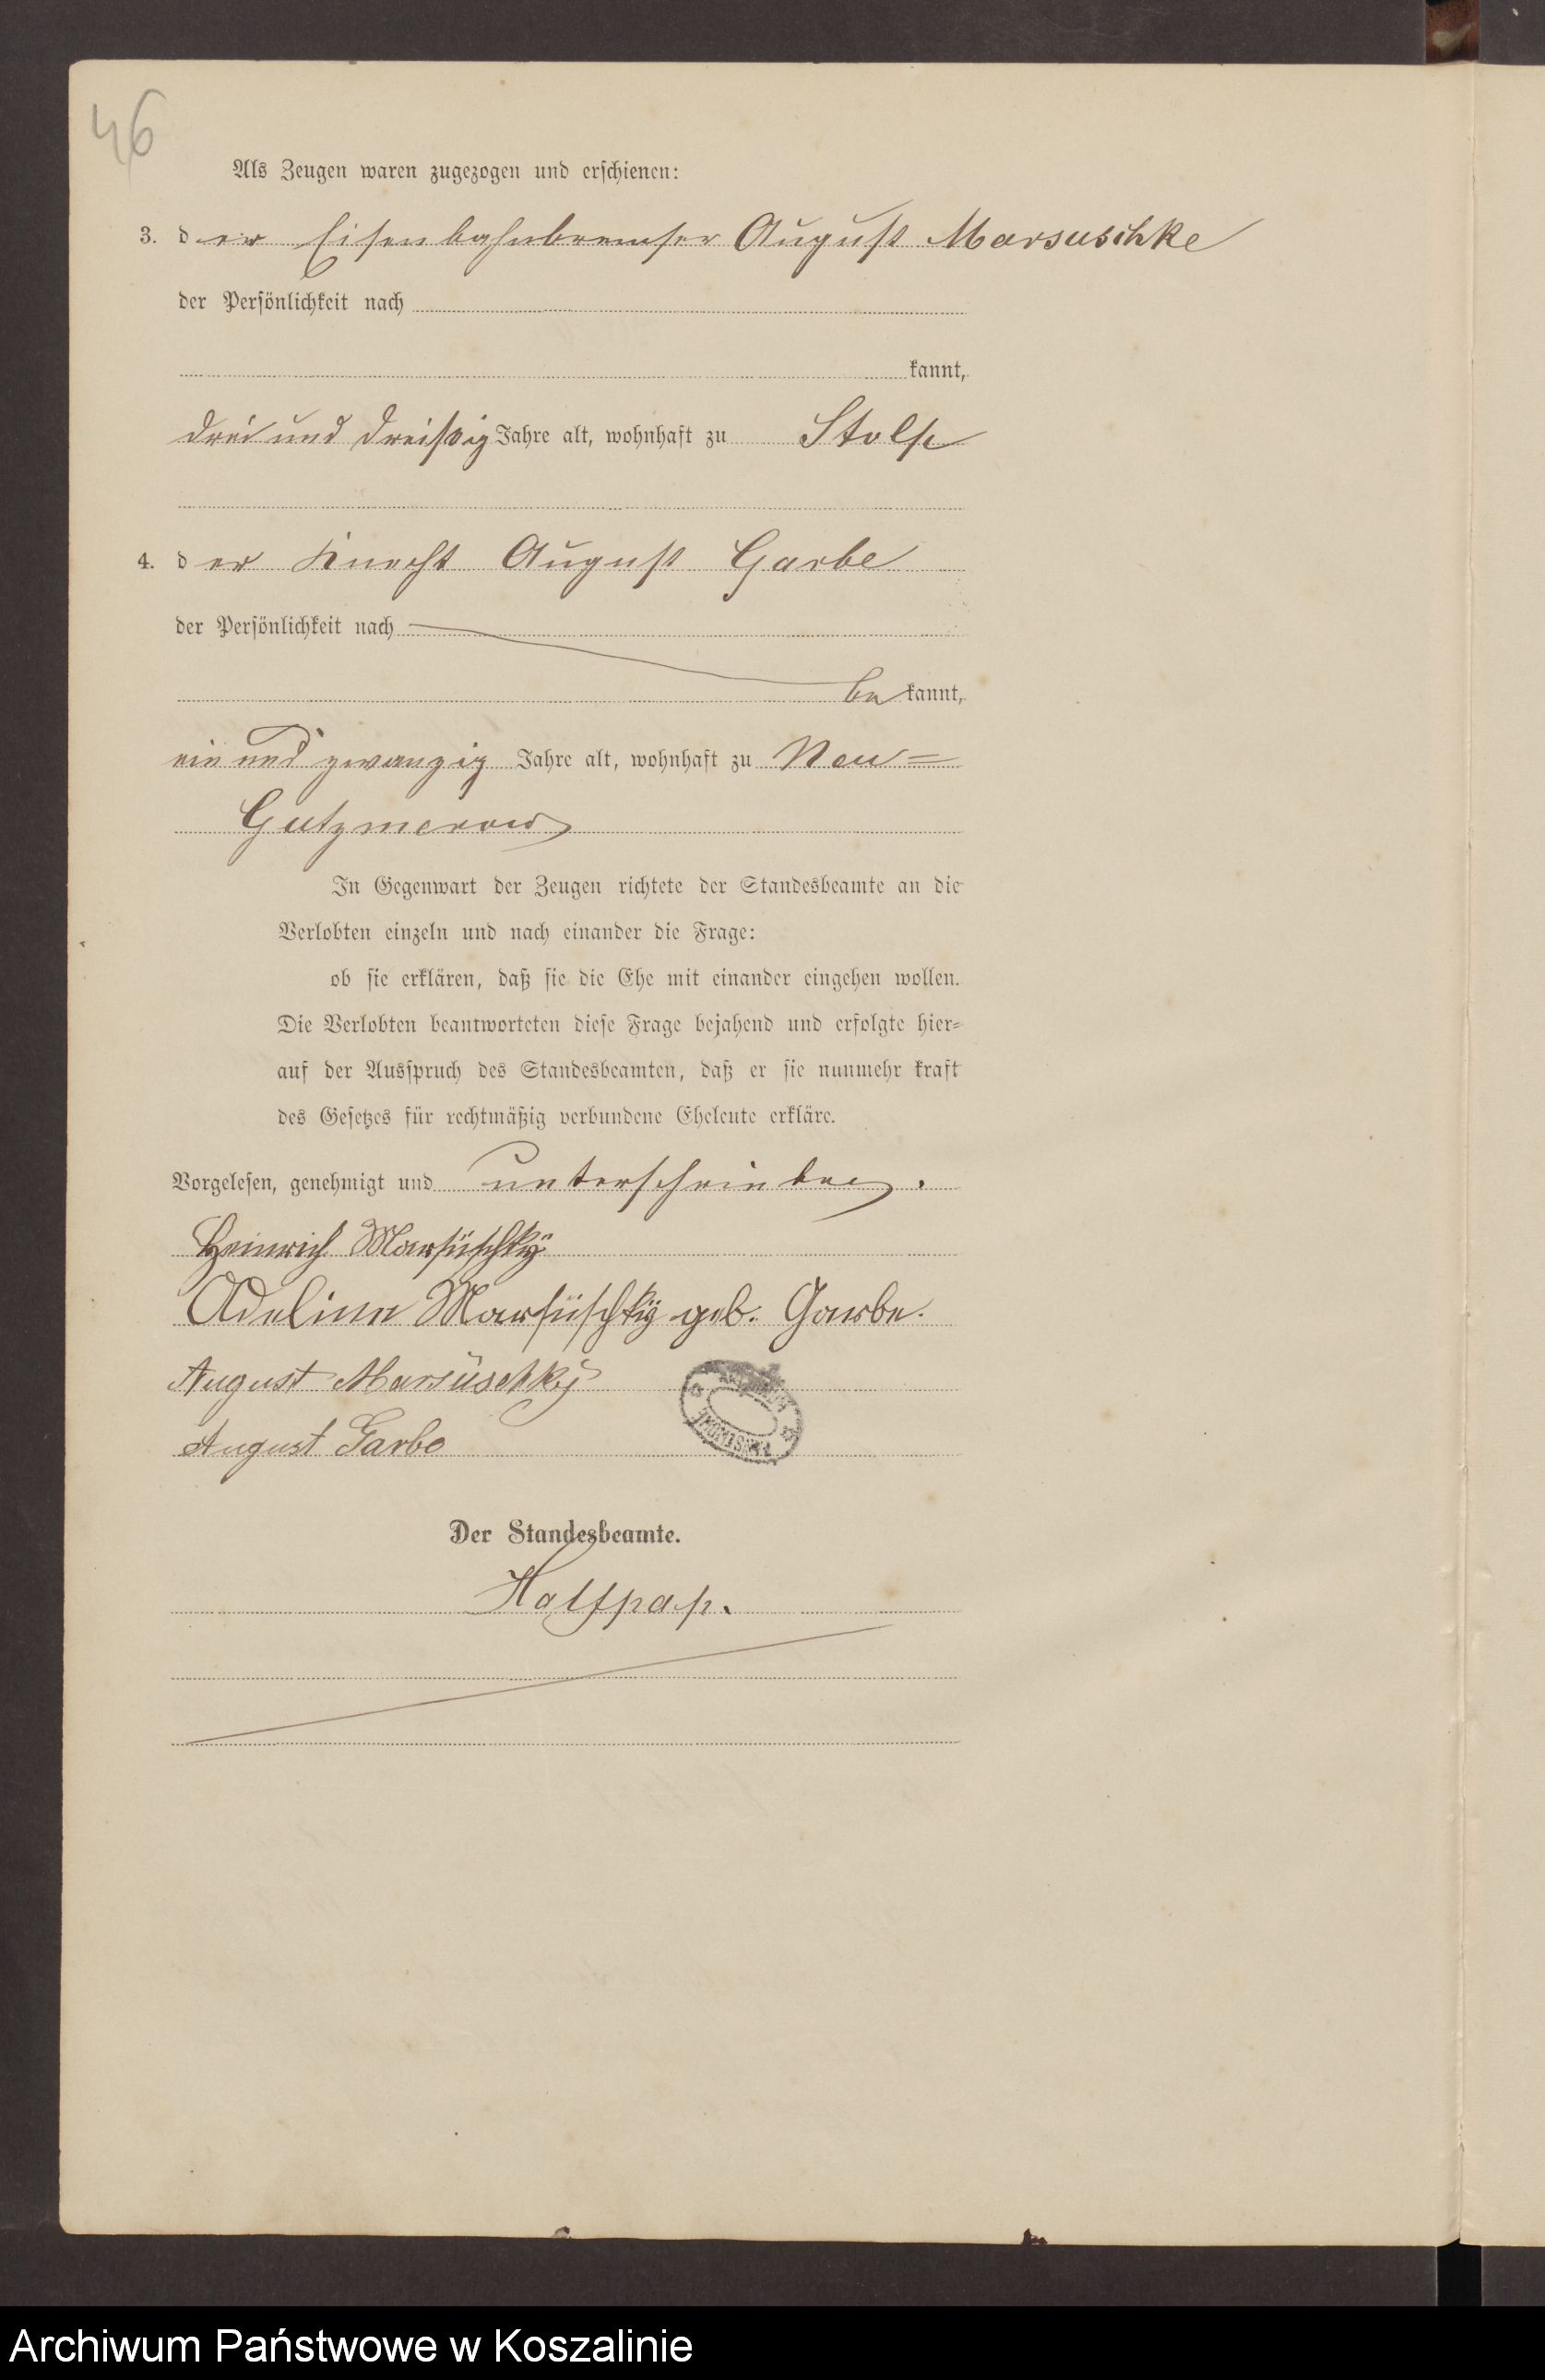 46
Als Zeugen waren zugezogen und erschienen:
3. der Eisenbahnbremser August Marsuschke
der Persönlichkeit nach
kannt,
drei und dreißig Jahre alt, wohnhaft zu Stolp
4. der Knecht August Garbe
der Persönlichkeit nach
be kannt,
ein und zwanzig Jahre alt, wohnhaft zu Neu=
Gutzmerow
In Gegenwart der Zeugen richtete der Standesbeamte an die
Verlobten einzeln und nach einander die Frage:
ob sie erklären, daß sie die Ehe mit einander eingehen wollen.
Die Verlobten beantworteten diese Frage bejahend und erfolgte hier=
auf der Ausspruch des Standesbeamten, daß er sie nunmehr kraft
des Gesetzes für rechtmäßig verbundene Eheleute erkläre.
Vorgelesen, genehmigt und unterschrieben.
Heinrich Marsüschky
Adeline Marsüschky geb. Garbe.
August Marsüschky
August Garbe
Der Standesbeamte.
Halfpap.
Archiwum Państwowe w Koszalinie